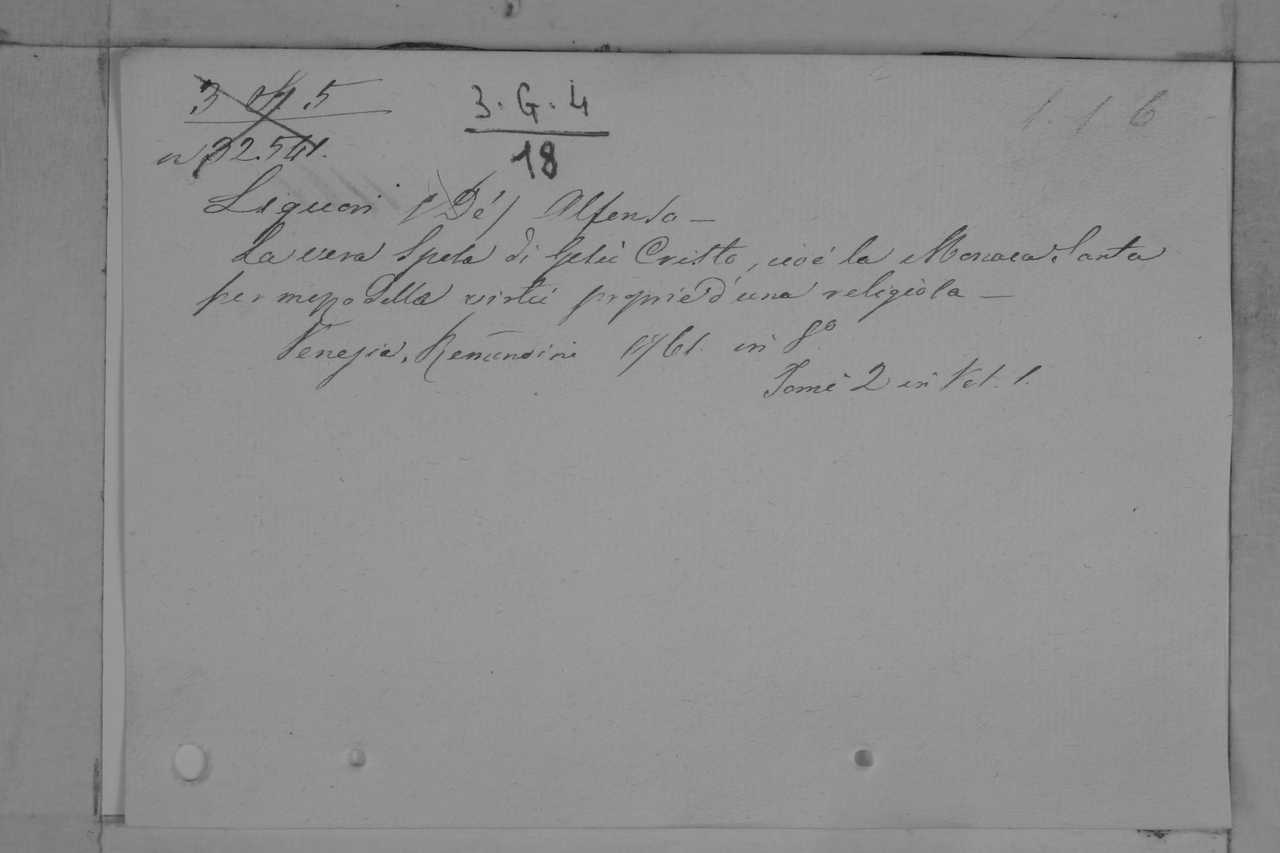 3 . G . 4
18
1. 1 6
Liquori (De) Alfonso —
La vera Sposa di Gesù Cristo, cioè la Monaca Santa
per mezzo delle virtù proprie d'una religiosa —
Venezia, Remondini 1761. in 8º
Tomi 2 in Vol. 1.